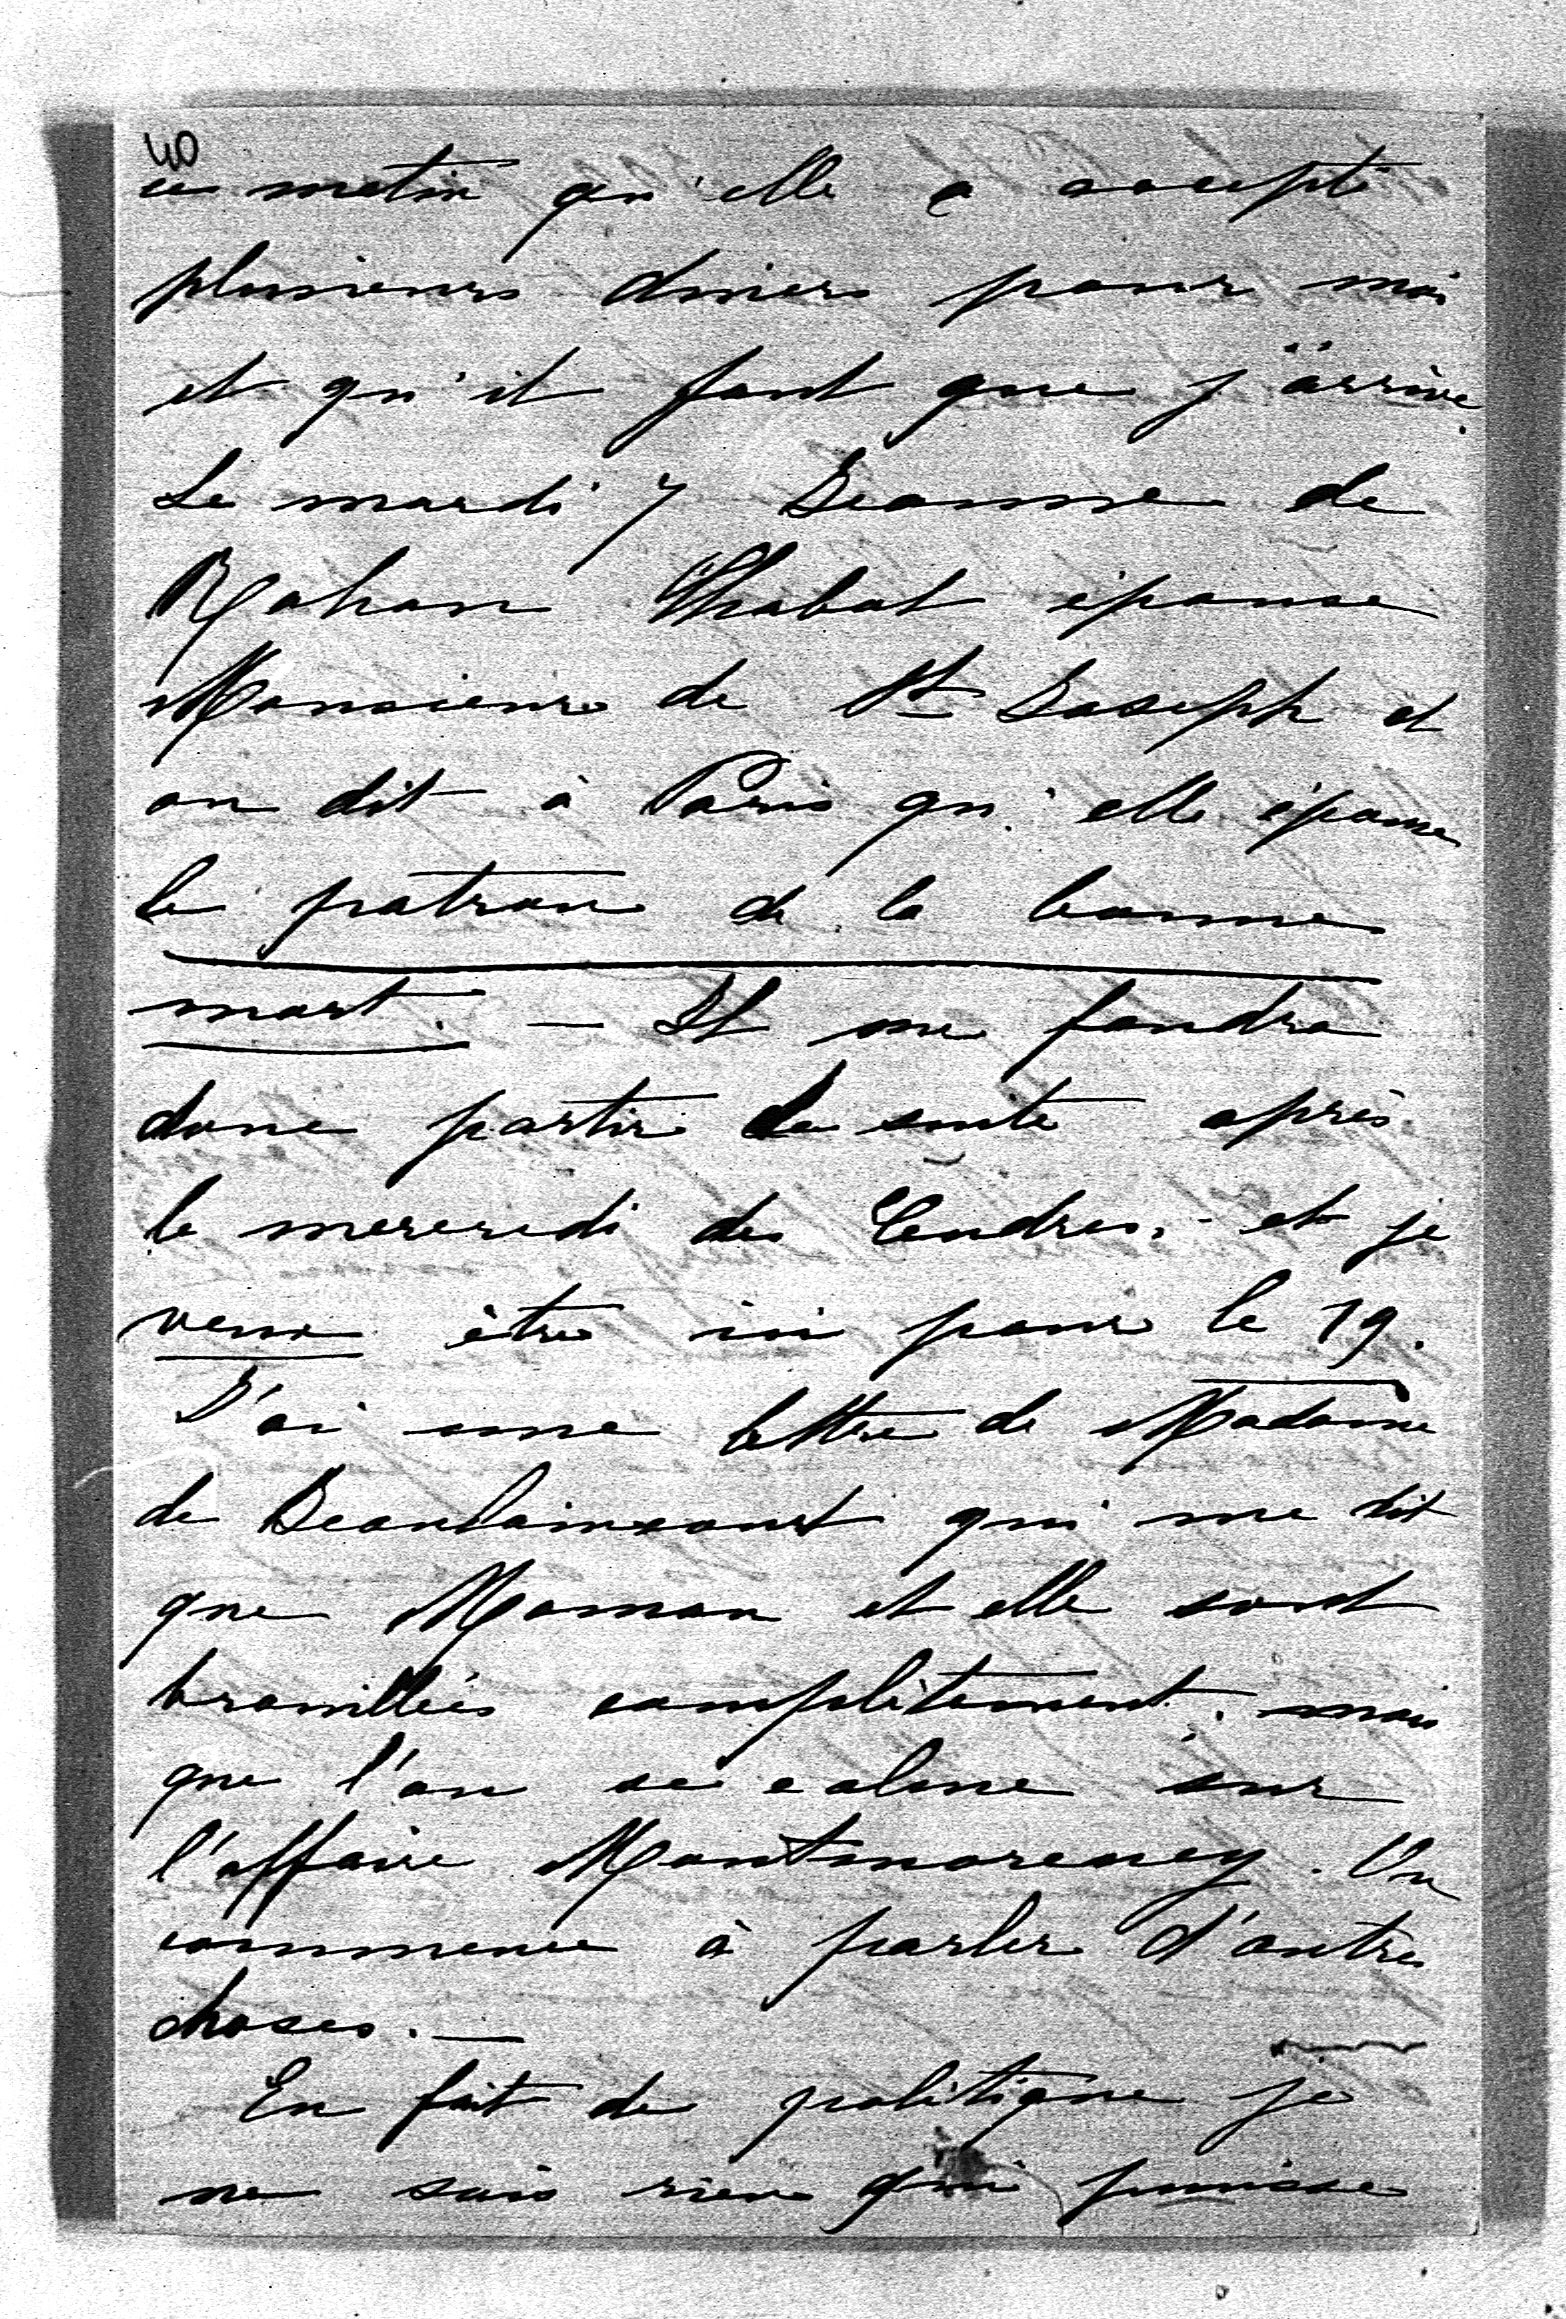 40
ce matin qu'elle a accepté
plusieurs diners pour moi
et qu'il faut que j'arrive.
Le mardi 7 Jeanne de
Rohan Chabot épouse
Monsieur de St Joseph et
on dit à Paris qu'elle épouse
le patron de la bonne
mort. — Il me faudra
donc partir de suite après
le mercredi des Cendres. et je
veux être ici pour le 19.
J'ai une lettre de Madame
de Beaulaincourt qui me dit
que Maman et elle sont
brouillées complètement. mais
que l'on se calme sur
l'affaire Montmorency. On
commence à parler d'autres
choses. —
En fait de politique je
ne sais rien qui puisse